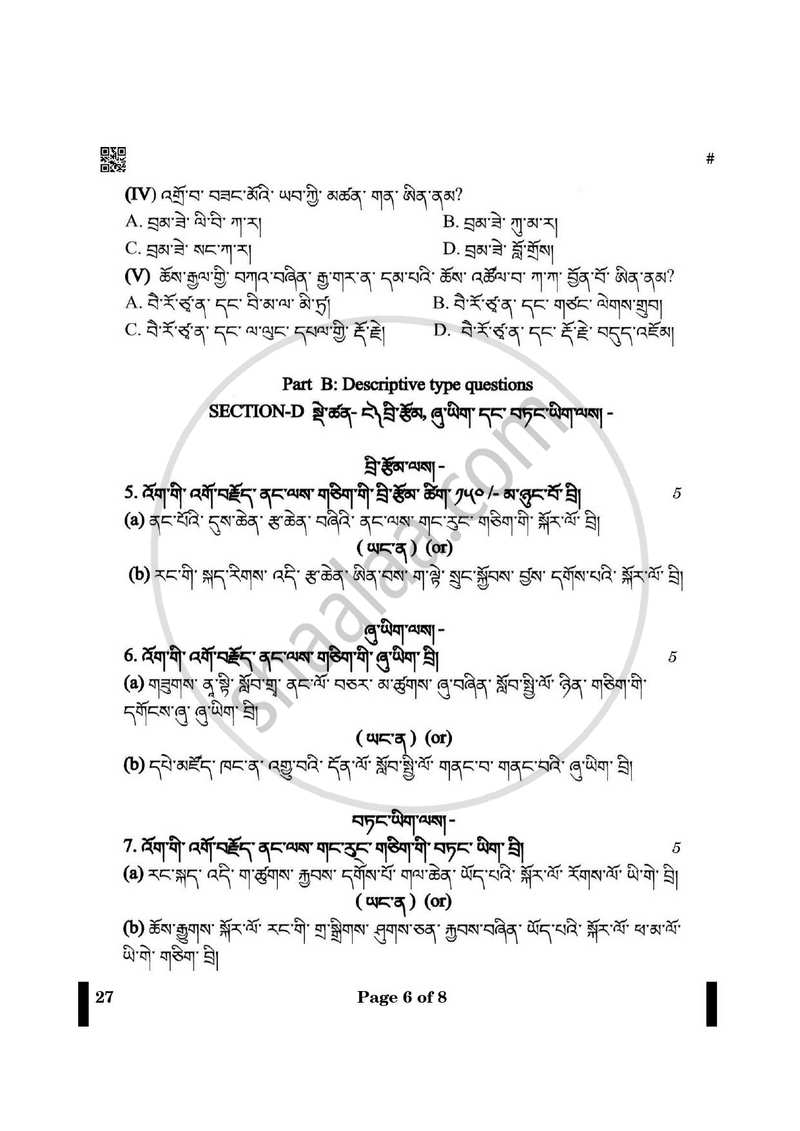 #
(IV) འགྲོ་བ་ བཟང་མོའི་ ཡབ་ཀྱི་ མཚན་ གན་ ཨིན་ནམ?
A. བྲམ་ཟེ་ ལི་བི་ ཀ་ར།
B. བྲམ་ཟེ་ ཀུ་མ་ར།
C. བྲམ་ཟེ་ སང་ཀ་ར།
D. བྲམ་ཟེ་ བློ་གྲོས།
(V) ཆོས་རྒྱལ་གྱི་ བཀའ་བཞིན་ རྒྱ་གར་ན་ དམ་པའི་ ཆོས་ འཚོལ་བ་ ཀ་ཀ་ བྱོན་བོ་ ཨིན་ནམ?
A. བཻ་རོ་ཙ་ན་ དང་ བི་མ་ལ་ མི་ཏྲ།
B. བཻ་རོ་ཙ་ན་ དང་ གཙང་ ལེགས་གྲུབ།
C. བཻ་རོ་ཙ་ན་ དང་ ལ་ལུང་ དཔལ་གྱི་ རྡོ་རྗེ།
D. བཻ་རོ་ཙ་ན་ དང་ རྡོ་རྗེ་ བདུད་འཇོམ།
Part B: Descriptive type questions
SECTION-D སྡེ་ཚན- ང༽ བྲི་རྩོམ, ཞུ་ཡིག་ དང་ བཏང་ཡིག་ལས། -
བྲི་རྩོམ་ལས། -
5. འོག་གི་ འགོ་བརྗོད་ ནང་ལས་ གཅིག་གི་ བྲི་རྩོམ་ ཚིག་ ༡༥༠/- མ་ཉུང་བོ་ བྲི། 5
(a) ནང་པོའི་ དུས་ཆེན་ རྩ་ཆེན་ བཞིའི་ ནང་ལས་ གང་རུང་ གཅིག་གི་ སྐོར་ལོ་ བྲི།
( ཡང་ན ) (or)
(b) རང་གི་ སྐད་རིགས་ འདི་ རྩ་ཆེན་ ཨིན་བས་ ག་ལྟེ་ སྲུང་སྐྱོབས་ བྱས་ དགོས་པའི་ སྐོར་ལོ་ བྲི།
ཞུ་ཡིག་ལས། -
6. འོག་གི་ འགོ་བརྗོད་ ནང་ལས་ གཅིག་གི་ ཞུ་ཡིག་ བྲི། 5
(a) གཟུགས་ ནཱ་སྟེ་ སློབ་གྲྭ་ ནང་ལོ་ བཅར་ མ་ཚུགས་ ཞུ་བཞིན་ སློབ་སྤྱི་ལོ་ ཉིན་ གཅིག་གི་
དགོངས་ཞུ་ ཞུ་ཡིག་ བྲི།
( ཡང་ན ) (or)
(b) དཔེ་མཛོད་ ཁང་ན་ འགྱུ་བའི་ དོན་ལོ་ སློབ་སྤྱི་ལོ་ གནང་བ་ གནང་བའི་ ཞུ་ཡིག་ བྲི།
བཏང་ཡིག་ལས། -
7. འོག་གི་ འགོ་བརྗོད་ ནང་ལས་ གང་རུང་ གཅིག་གི་ བཏང་ ཡིག་ བྲི། 5
(a) རང་སྐད་ འདི་ ག་ཚུགས་ རྐྱབས་ དགོས་པོ་ གལ་ཆེན་ ཡོད་པའི་ སྐོར་ལོ་ རོགས་ལོ་ ཡི་གེ་ བྲི།
( ཡང་ན ) (or)
(b) ཆོས་རྒྱུགས་ སྐོར་ལོ་ རང་གི་ གྲ་སྒྲིགས་ ཤུགས་ཅན་ རྐྱབས་བཞིན་ ཡོད་པའི་ སྐོར་ལོ་ ཕ་མ་ལོ་
ཡི་གེ་ གཅིག་ བྲི།
shaalaa.com
27
Page 6 of 8